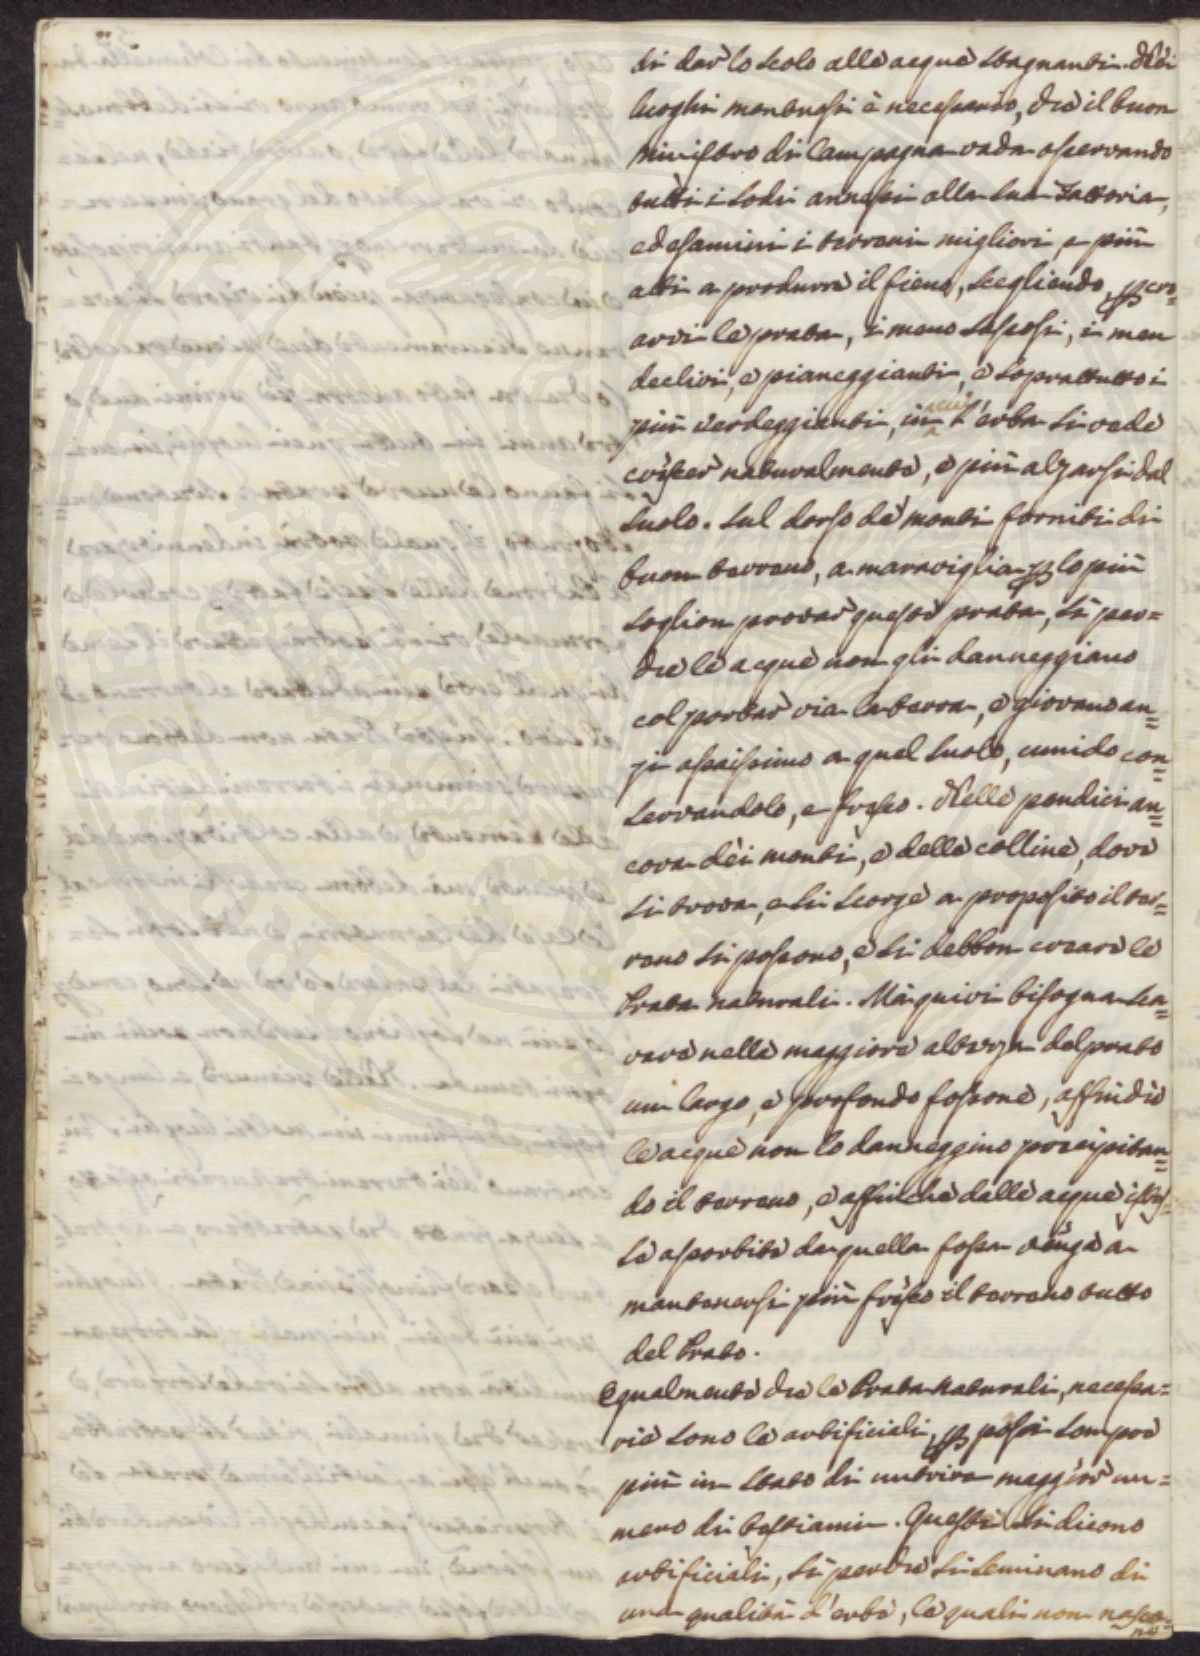 di dar lo scolo alle acque stagnanti. Nei
luoghi montuosi è necessario, che il buon
ministro di Campagna vada osservando
tutti i sodi annessi alla sua Fattoria,
ed esamini i terreni migliori, e più
atti a produrre il fieno, scegliendo, per cre=
arvi le prata, i meno sassosi, i men
declivi, e pianeggianti, e soprattutto i
più verdeggianti, in cui l'erba si vede
crescer naturalmente, e più alzarsi dal
suolo. Sul dorso de' monti forniti di
buon terreno, a maraviglia per lo più
soglion provar queste prata, sì per=
che le acque non gli danneggiano
col portar via la terra, e giovano an=
zi assaissimo a quel suolo, umido con=
servandolo, e fresco. Nelle pendici an=
cora dei monti, e delle colline, dove
si trova, e si scorge a proposito il ter=
reno si possono, e si debbon creare le
Prata naturali. Ma quivi bisogna sca=
vare nella maggiore altezza del prato
un largo, e profondo fossone, affinchè
le acque non lo danneggino precipitan=
do il terreno, e affinchè dalle acque istes=
se assorbite da quella fossa venga a
mantenersi più fresco il terreno tutto
del Prato.
Egualmente che le Prata Naturali, necessa=
rie sono le artificiali, per porsi sempre
più in stato di nutrire maggior nu=
mero di bestiami. Questi si dicono
artificiali, sì perchè si seminano di
una qualità d'erbe, le quali non nasco=
no